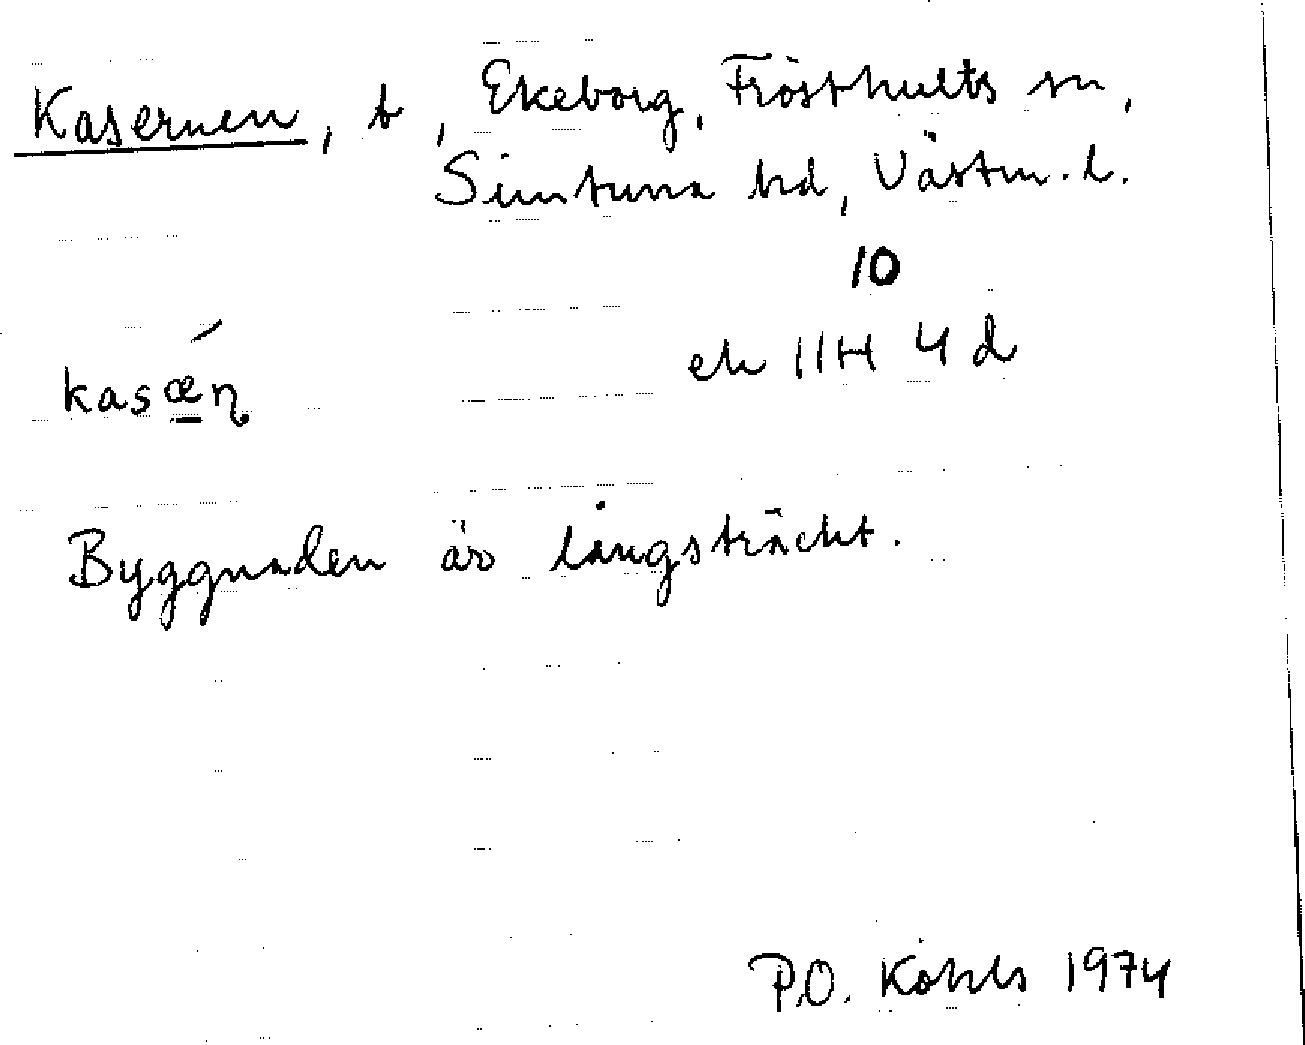 Kasernen, t, Ekeborg, Frösthults sn,
Simtuna hd, Västm. l.
10
ek 11H 4 d
kasǽṇ
Byggnaden är långsträckt.
P.O. Kåhls 1974